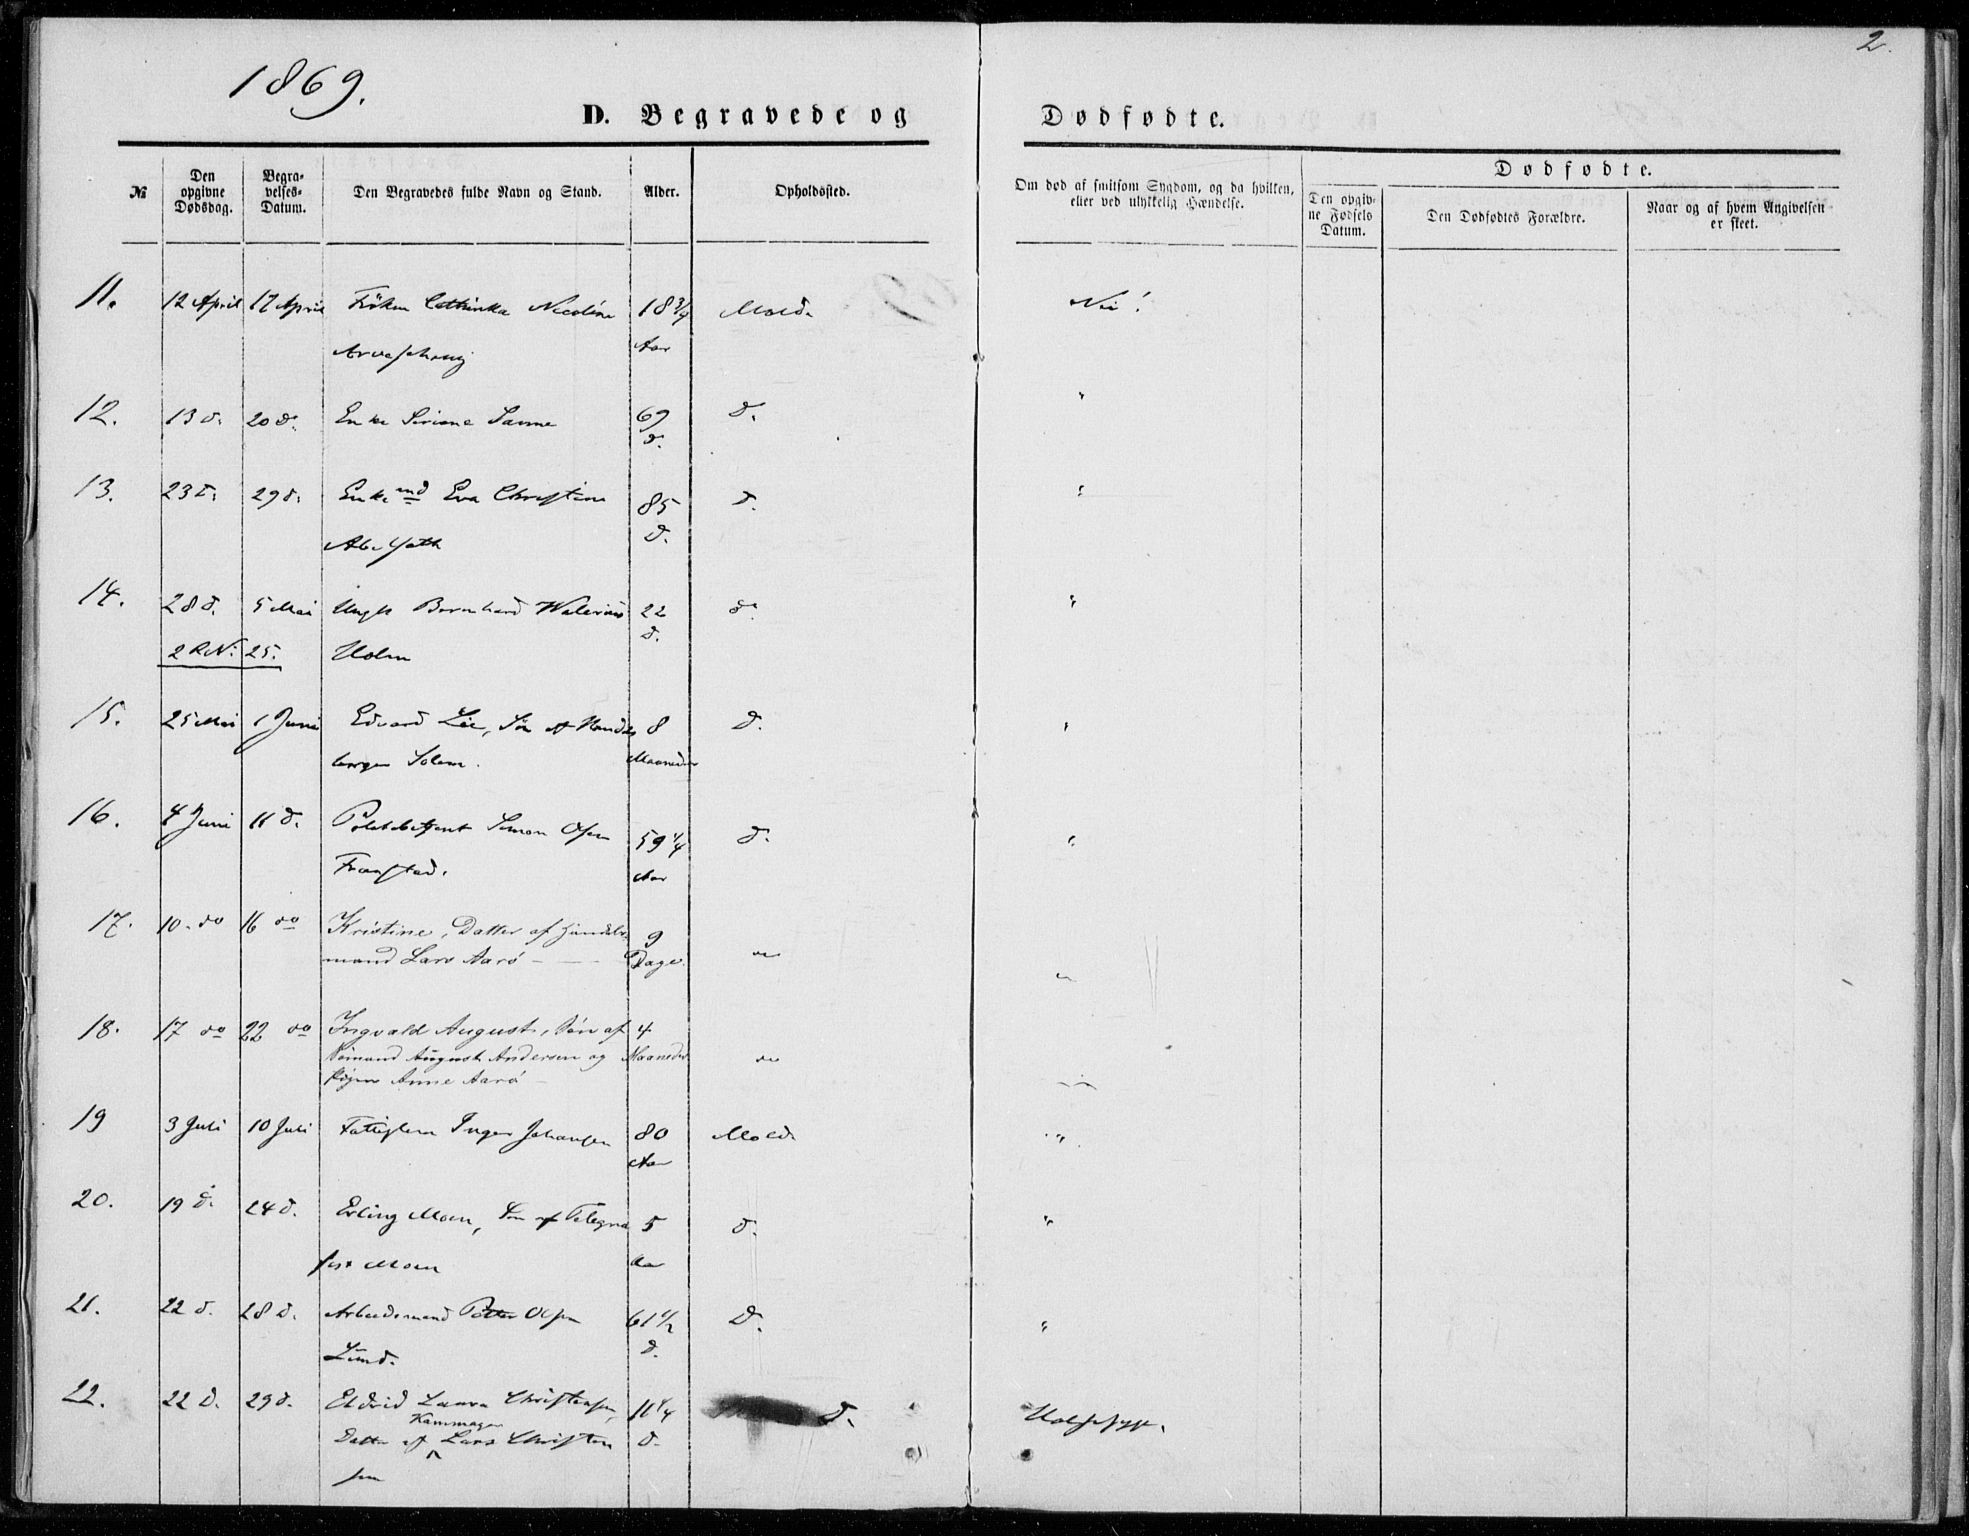 1869.
2.
D. Begravede og Dødfødte.
№
Den opgivne Dødsdag.
Begravelses-Datum.
Den Begravedes fulde Navn og Stand.
Alder.
Opholdssted.
Om død af smitsom Sygdom, og da hvilken, eller ved ulykkelig Hændelse.
Dødfødte.
Den opgivne Fødsels Datum.
Den Dødfødtes Forældre.
Naar og af hvem Angivelsen er skeet.
11. 12 April 17 April Frøken Cathinka Nicoline 18 3/4 Molde Nei!
Aar
12. 13 d. 20 d. Enke 69 d. "
d.
13. 23 d. 29 d. Enke Eva Christine 85 d. "
d.
14. 28 d. 5 Mai Bernhard Walerius 22 d. "
25. Holm d.
15. 25 Mai 1 Juni Edvard Søn af Handels 8 d. "
borger Solem. Maaneder
16. 4 Juni 11 d. Politibetjent Simon Olsen 59 1/4 d. "
Aar
17. 10. do 16 do Kristine, Datter af Handels- 9 "
mand Lars Aarø — Dage. "
18. 17 do 22 do Ingvald August, Søn af 4
Sømand August Andersen og Maaneder "
Pigen Anne Aarø — "
19 3 Juli 10 Juli Fattiglem Inger Johansen 80 Molde "
Aar
20. 19 d. 24 d. Erling Moen, Søn af Telegra 5 d. "
fist Moen Aar
21. 22 d. 28 d. Arbeidsmand Petter Olsen 61 1/2 d. "
Lund. d.
22. 22 d. 29 d. Eldrid Laura Christensen, 11 1/4 d. Halssyge.
Kammager
Datter af Lars Christen d.
sen